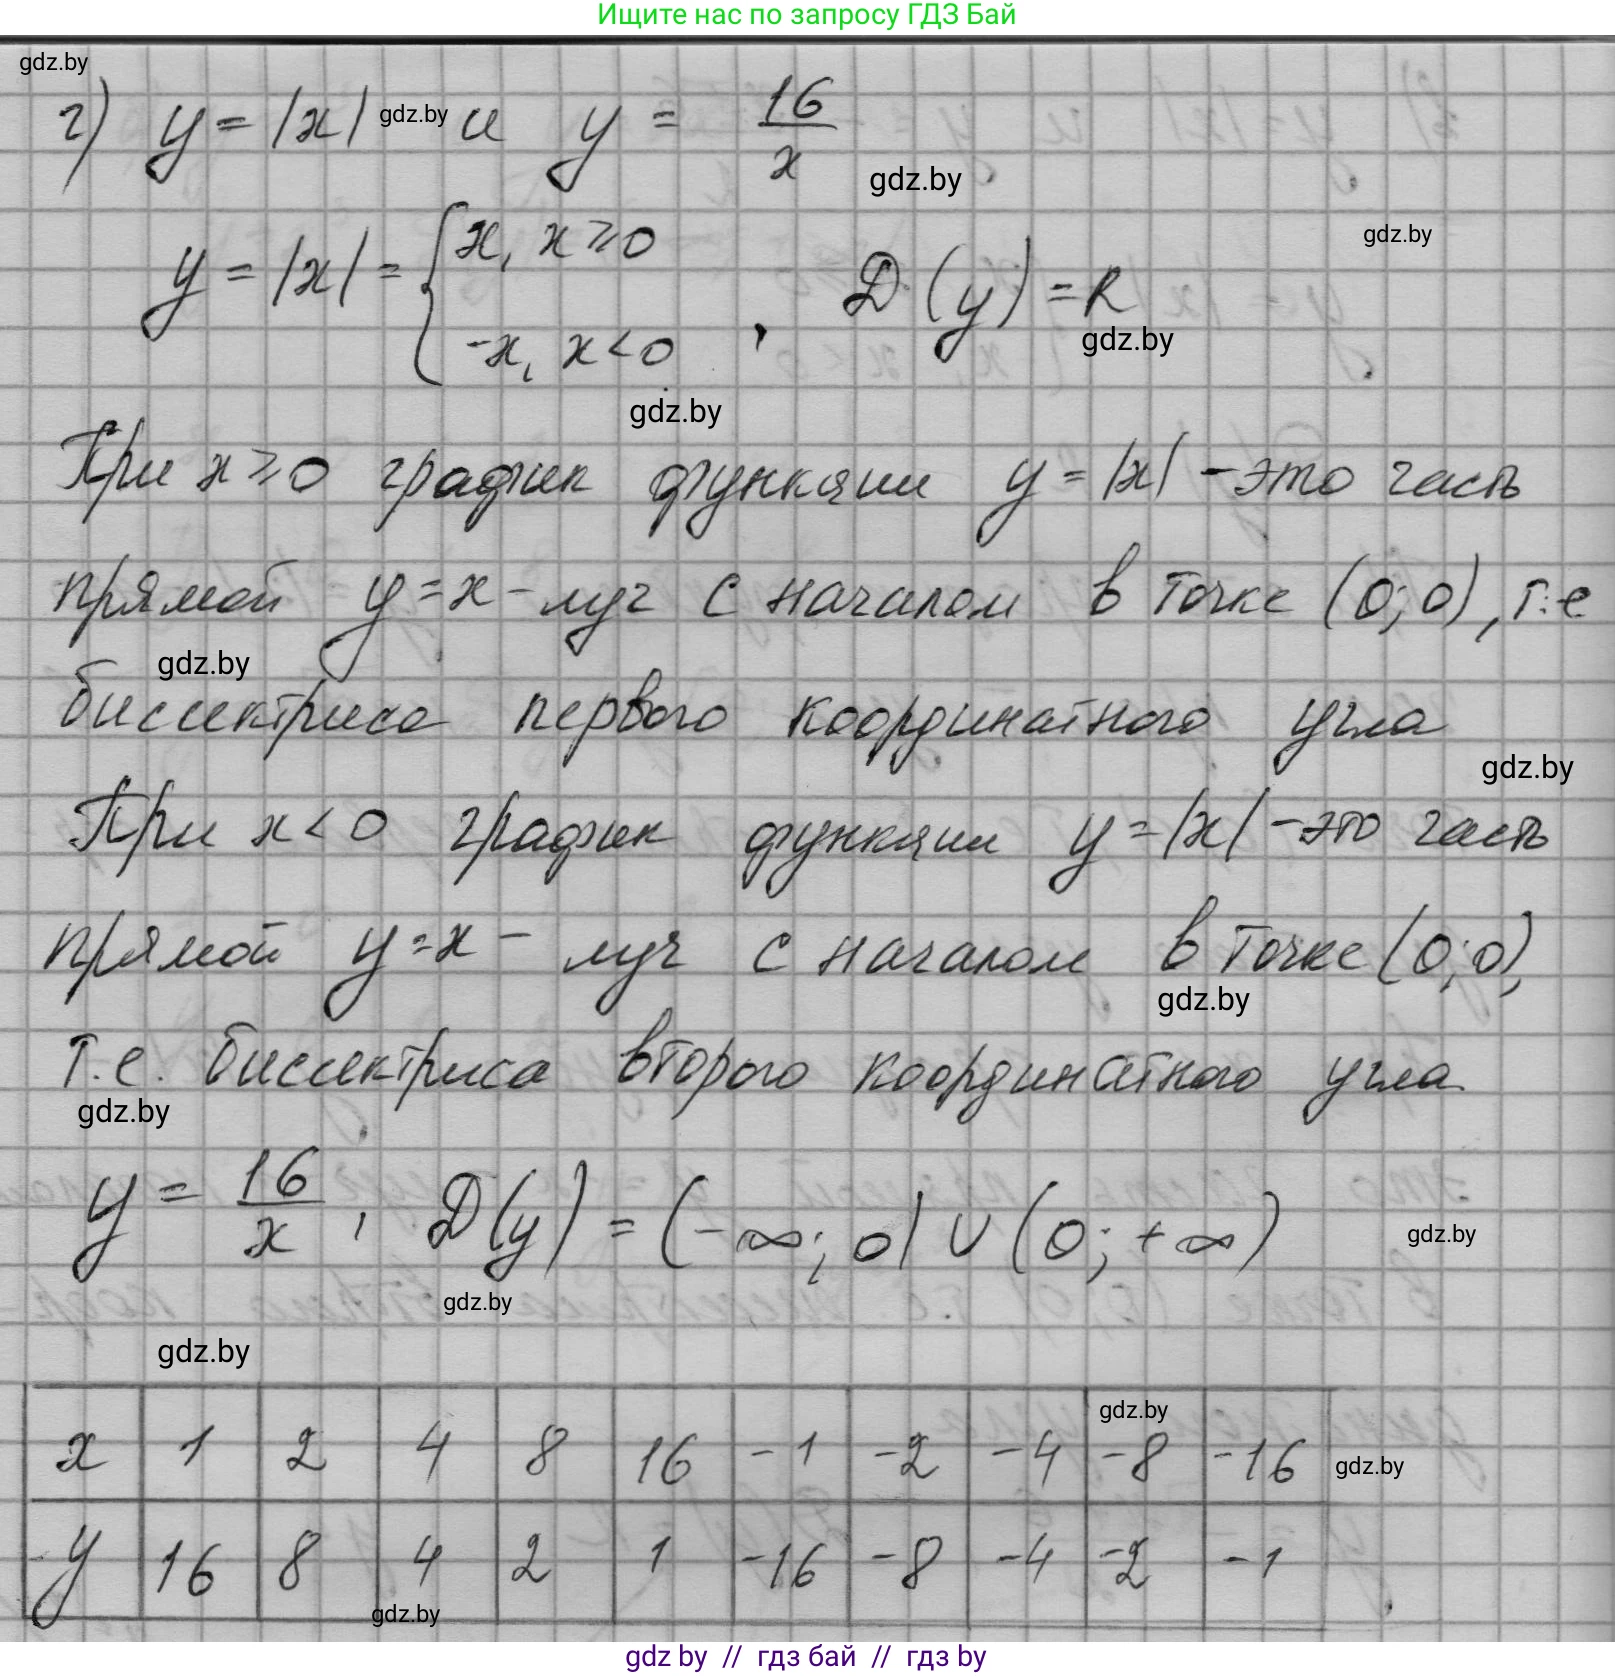 Ищите нас по запросу ГДЗ Бай
gdz.by
г) y = |x| gdz.by и y = 16/x
gdz.by
gdz.by
y = |x| = { x, x ≥ 0
-x, x < 0 , D(y) = R
gdz.by
gdz.by
При x ≥ 0 график функции y = |x| - это часть
прямой y = x - луч с началом в точке (0; 0), т.е
gdz.by
биссектриса первого координатного угла
gdz.by
При x < 0 график функции y = |x| - это часть
прямой y = x - луч с началом в точке (0; 0),
gdz.by
т.е. биссектриса второго координатного угла
gdz.by
y = 16/x , D(y) = (-∞; 0) ∪ (0; +∞)
gdz.by
gdz.by
gdz.by
gdz.by
x 1 2 4 8 16 -1 -2 -4 -8 -16
gdz.by
y 16 8 4 2 1 -16 -8 -4 -2 -1
gdz.by
gdz by // гдз бай // гдз by